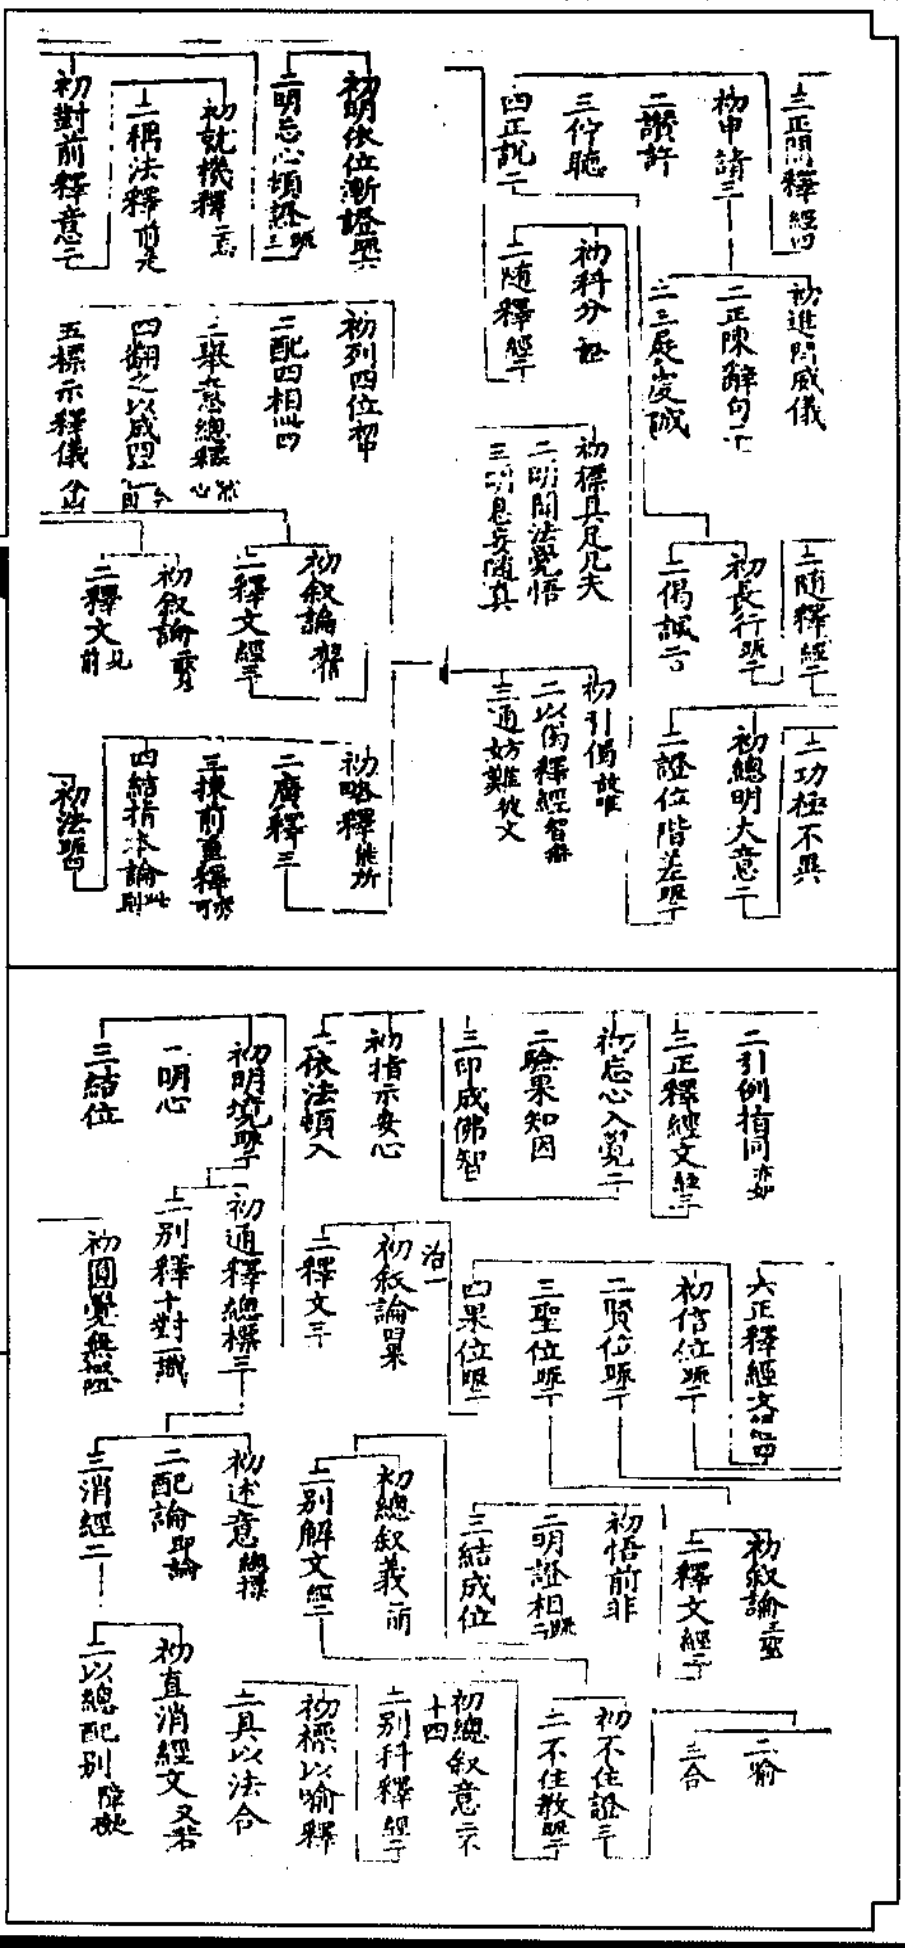 三正問釋經四
初申請三
二讚許
三佇聽
四正說二
初進問威儀
二正陳辭句二
三三展虔誠
初科分
二隨釋經二
初標具足凡夫
二明聞法覺悟
三明息妄隨真
二隨釋經二
初長行疏二
二偈諷二
二功極不異
初總明大意二
二證位階差疏二
初引偈故唯
二以偈釋經智
三通妨難彼文
初明依位漸證疏六
二明忘心頓證疏三
初就機釋
二稱法釋前是
初對前釋意二
初列四位初中
二配四相此四
三舉意總釋
四翻之以成
五標示釋儀
初敘論
二釋文經三
初敘論
二釋文見前
初略釋能所
二廣釋三
三揀前重釋
四結指本論此
初法疏四
二引例指同
三正釋經文經三
初忘心入覺二
二驗果知因
三印成佛智
初指示安心
二依法頓入
初明境疏二
二明心
三結位
六正釋經文經四
初信位疏二
二賢位疏二
三聖位疏二
四果位疏二
治一
初敘論四果
二釋文三
初通釋總標三
二別釋十對
初圓覺無礙
初敘論三聖
二釋文經二
初悟前非
二明證相疏二
三結成位
初總敘義前
二別解文經二
初述意總標
二配論即論
三消經二
二喻
三合
初不住證三
二不住教疏二
初總敘意二不
十四
二別科釋經二
初標以喻釋
二具以法合
初直消經文又若
二以總配別障礙